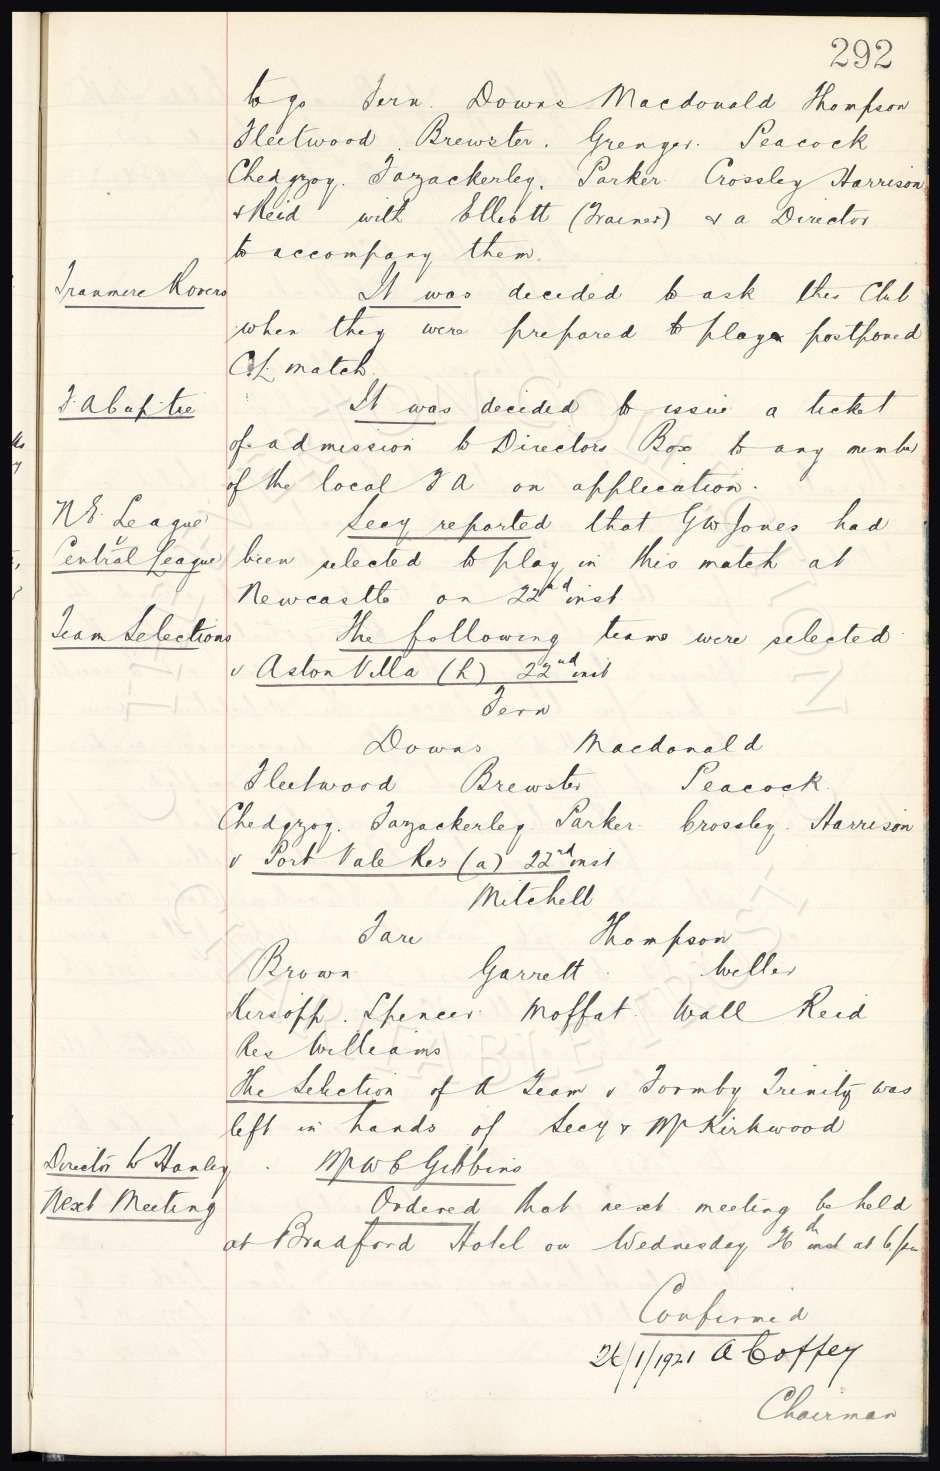 292
to go Fern. Downs Macdonald Thompson
Fleetwood. Brewster. Grenyer. Peacock
Chedgzoy. Fazackerley. Parker Crossley Harrison
& Reid with Elliott (Trainer) & a Director
to accompany them.
Tranmere Rovers It was decided to ask this Club
when they were prepared to play postponed
C.L. match.
F.A Cup tie It was decided to issue a ticket
of admission to Directors Box to any member
of the local F A on application.
N E. League Secy reported that G W Jones had
v
Central League been selected to play in this match at
Newcastle on 22nd inst
Team Selections The following teams were selected
v Aston Villa (h) 22nd inst
Fern
Downs Macdonald
Fleetwood Brewster Peacock.
Chedgzoy. Fazackerley. Parker. Crossley. Harrison
v Port Vale Res (a) 22nd inst
Mitchell
Fare Thompson
Brown Garrett. Weller
Kirsopp. Spencer. Moffat. Wall Reid
Res Williams
The Selection of A Team v Formby Trinity was
left in hands of Secy & Mr Kirkwood
Director to Hanley. Mr W C Gibbins
Next Meeting Ordered that next meeting be held
at Bradford Hotel on Wednesday 26th inst at 6/pm
Confirmed
26/1/1921 A Coffey
Chairman